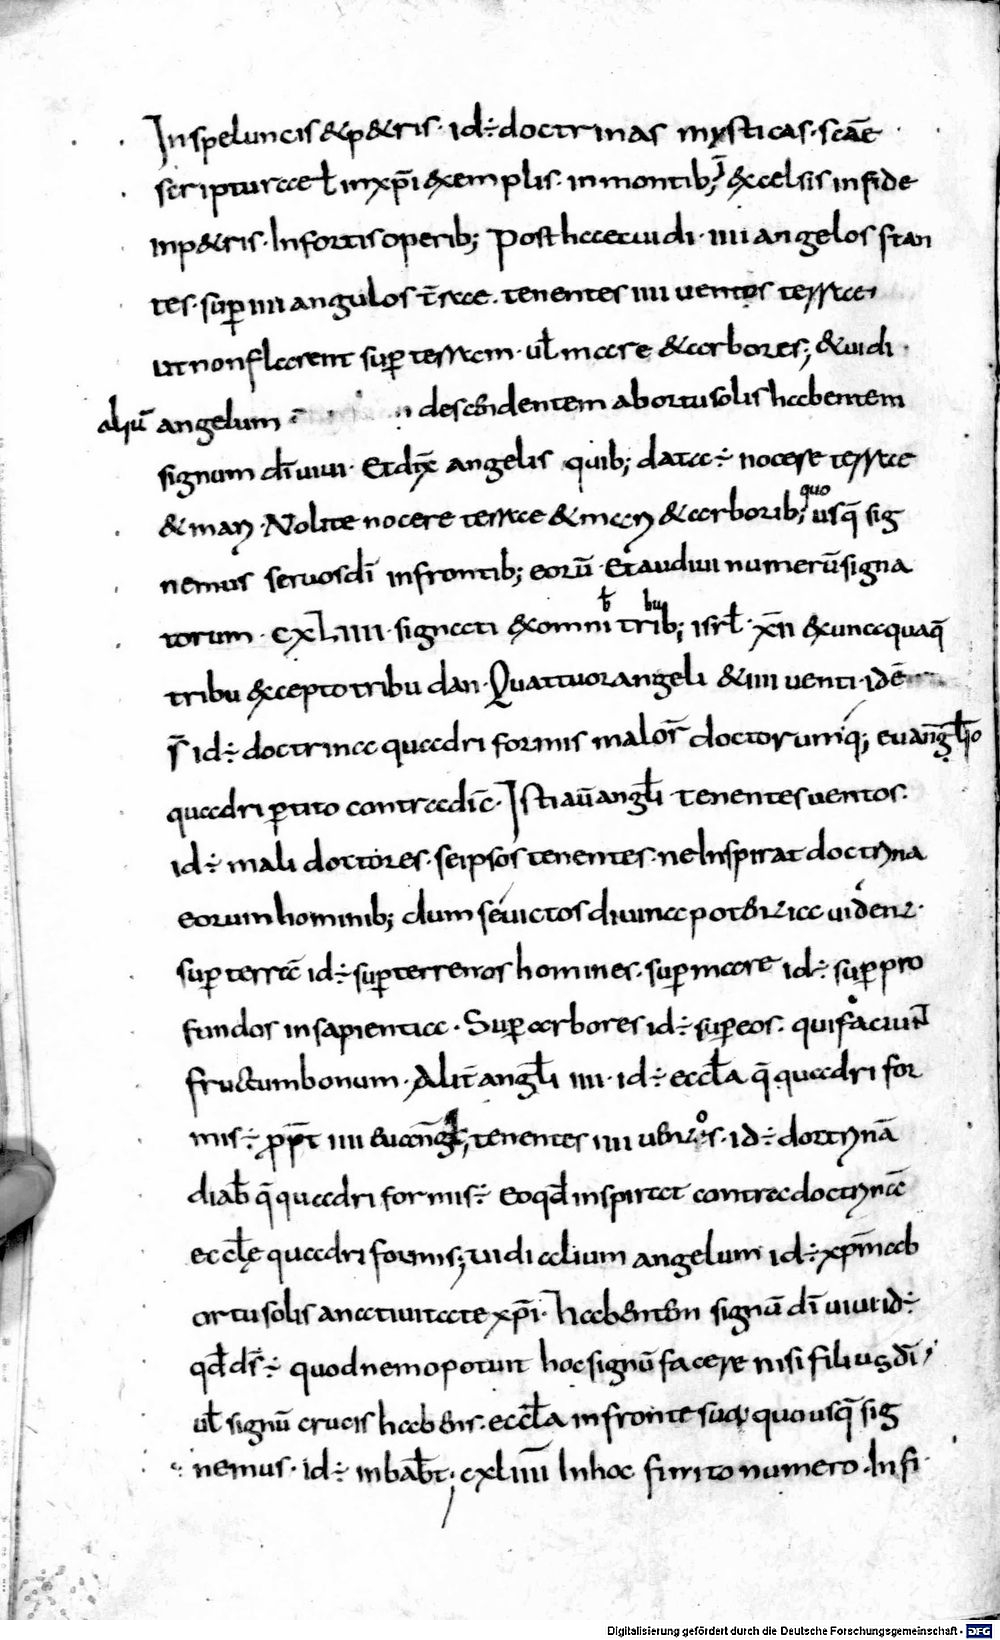 In speluncis & p&ris · id÷ doctrinas mysticas · scāe
scripturae ł in xp̄i exemplis · in montib; excelsis in fide
in p&ris · In fortis operib; Post haec uidi · IIII angelos stan
tes · sup̄ IIII angulos t̄rae · tenentes IIII uentos terrae
ut non flarent sup̄ terram · uł mare & arbores; & uidi ·
aliū angelum descendentem ab ortu solis habentem
signum dī uiui · Et dix̄ angelis quib; data÷ nocere terrae
& mari · Nolite nocere terrae & mari & arborib; quo usq̄ sig
nemus seruos dī in frontib; eorū · Et audiui numerū signa
torum · CXLIIII · signati ex omni trib; isrł · x̄ii ex unaquaq̄
tribu excepto tribu dan · Quattuor angeli & IIII uenti · idē
s̄ id÷ doctrina quadriformis malor̄ doctorumq; euāngłio
quadripertito contradic̄ · Isti aū angłi tenentes uentos ·
id÷ mali doctores · se ipsos tenentes · ne inspirat doctrina
eorum hominib; dum se uictos diuina potentia uident ·
sup̄ terrā id÷ sup̄ terrenos homines · sup̄ mare id÷ sup̄ pro
fundos in sapientia · Sup̄ arbores id÷ sup̄ eos · qui faciunt
fructum bonum · Alit̄ angłi IIII · id÷ eccła q̄ quadrifor
mis÷ pp̄t IIII euāngł; tenentes IIII uentos · id÷ doctrinā
diab̄ q̄ quadriformis÷ eo qd̄ inspirat contra doctrinā
eccłę quadriformis; uidi alium angelum id÷ xp̄m ab
ortu solis a natiuitate xp̄i · habentem signū dī uiui id÷
qd̄ ds̄÷ quod nemo potuit hoc signū facere nisi filius dī ·
uł signū crucis habens · eccła in fronte sua quousq̄ sig
nemus · id÷ in bab̄t · cxlIIII In hoc finito numero · Infi